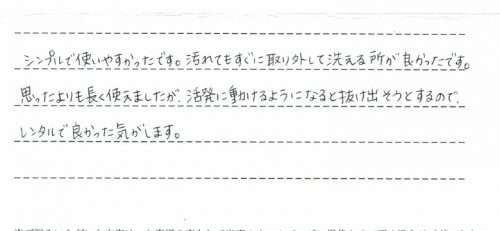 シンプルで使いやすかったです。汚れてもすぐに取り外して洗える所が良かったです。
思ったよりも長く使えましたが、活発に動けるようになると抜け出そうとするので、
レンタルで良かった気がします。